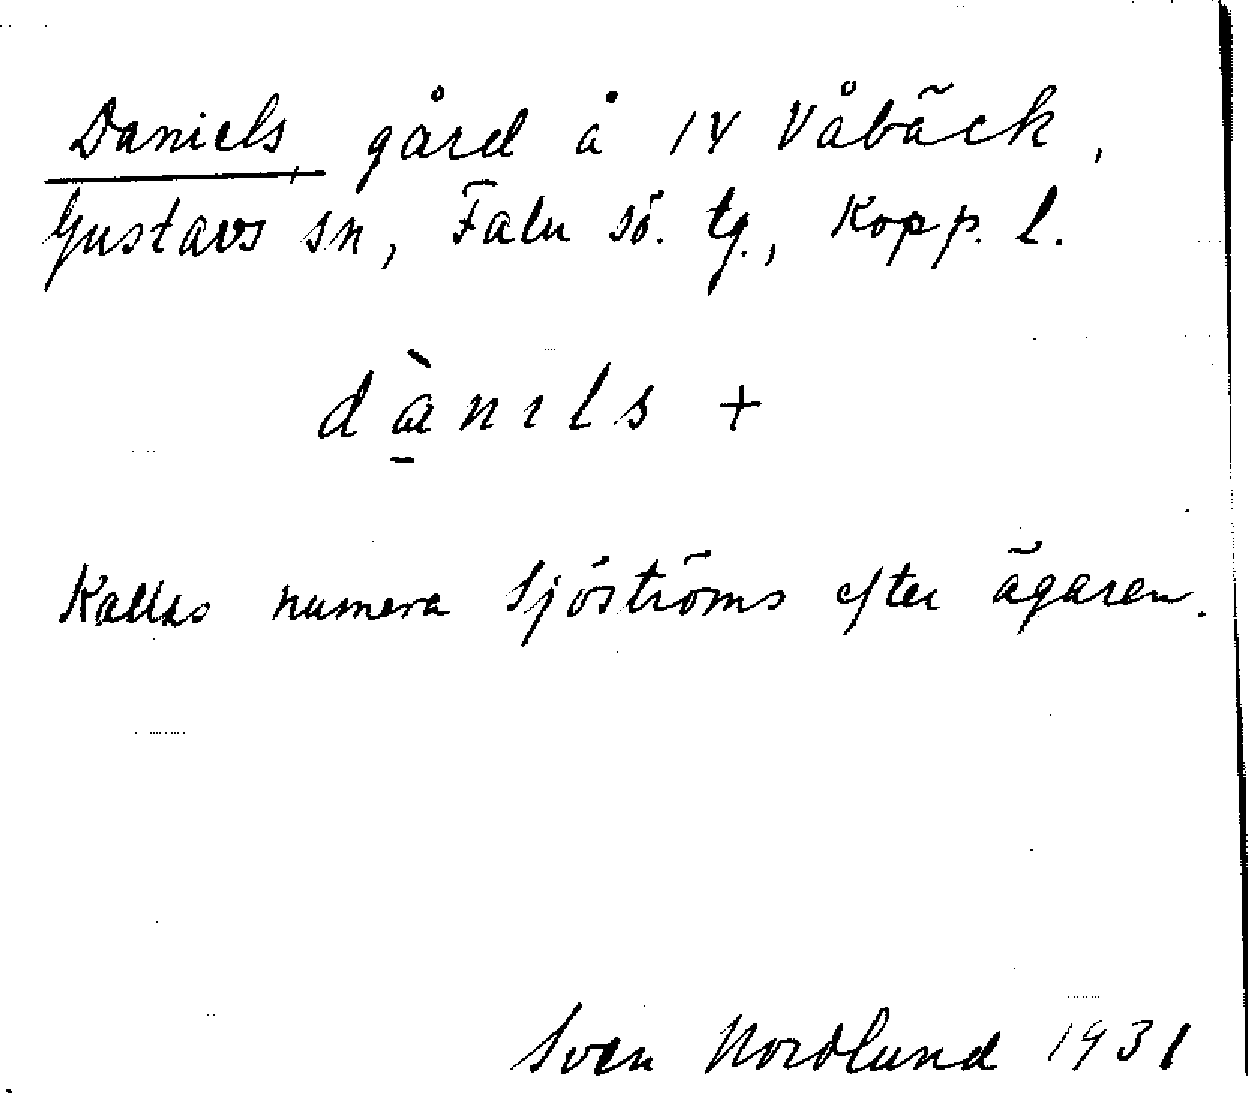 Daniels, gård å 14 Våbäck,
Gustavs sn, Falu sö. tg., Kopp. l.
dànıls +
Kallas numera Sjöströms efter ägaren.
Sven Nordlund 1931